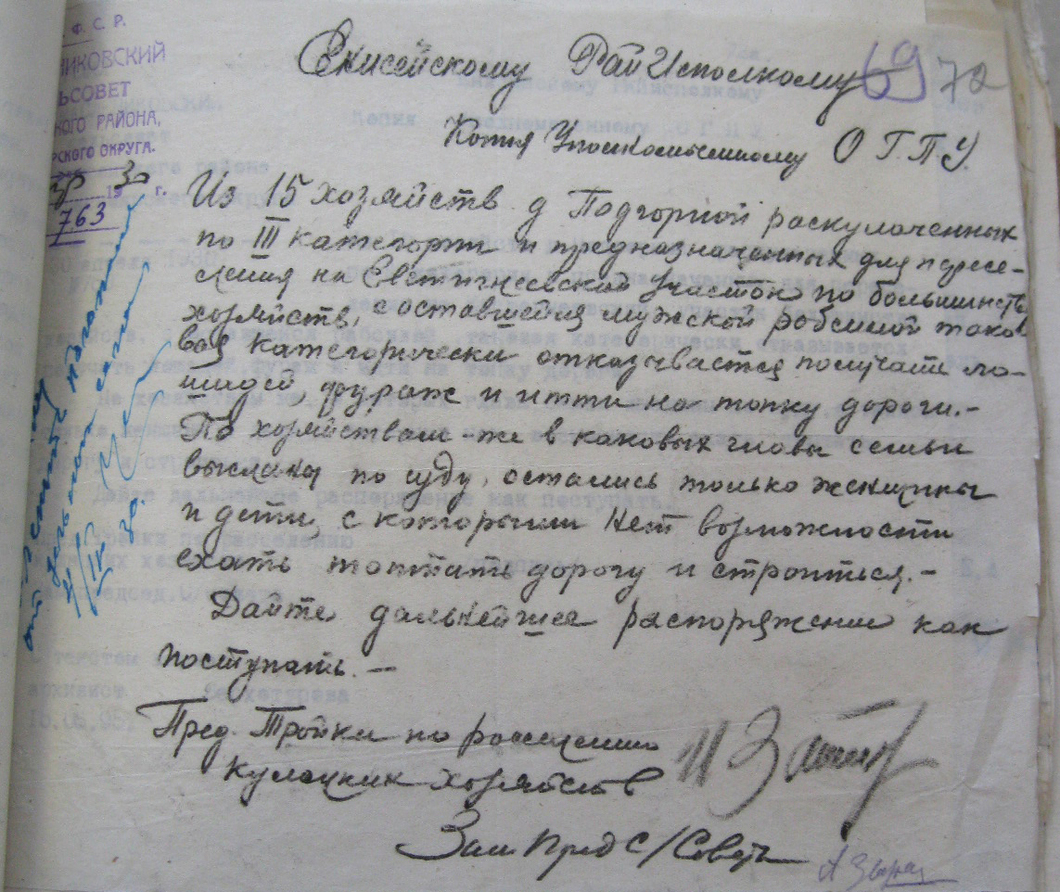 Ф. С. Р.
НИКОВСКИЙ
ЬСОВЕТ
КОГО РАЙОНА,
РСКОГО ОКРУГА.
19 30 г.
763
69 72
Енисейскому РайИсполкому
Копия Уполномоченному О Г.П.У.
Из 15 хозяйств д Подгорной раскулаченных
по III категории и предназначенных для пересе-
ления на Евстигнеевский участок по большинству
хозяйств, оставшейся мужской рабсилой тако-
вая категорически отказывается получать ло-
шадей, фураж и итти на топку дороги.-
По хозяйствам-же в каковых главы семьи
высланы по суду, остались только женщины
и дети, с которыми нет возможности
ехать топтать дорогу и строиться.-
Дайте дальнейшее распоряжение как
поступать.-
Пред. Тройки по расселению
кулацких хозяйств
Зам Пред С/Совета